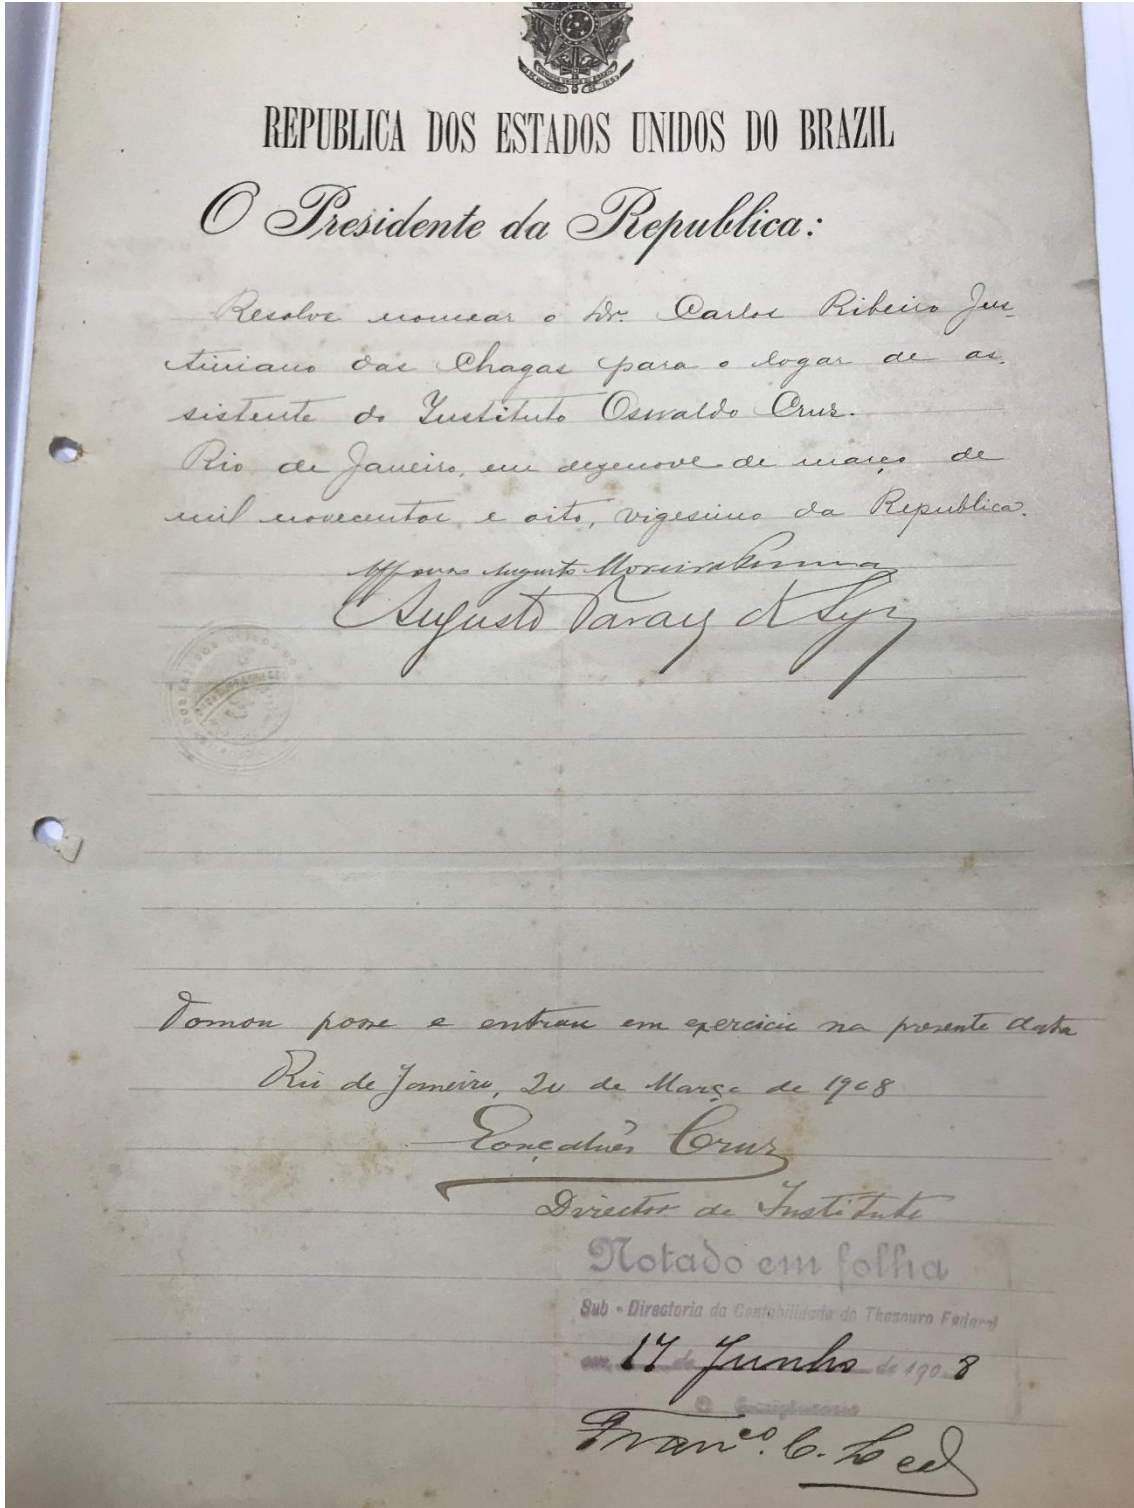 REPUBLICA DOS ESTADOS UNIDOS DO BRAZIL
O Presidente da Republica:
Resolve nomear o Dr. Carlos Ribeiro Jus-
tiniano das Chagas para o logar de as-
sistente do Instituto Oswaldo Cruz.
Rio de Janeiro, em dezenove de março de
mil novecentos e oito, vigesimo da Republica.
Affonso Augusto Moreira Penna
Augusto Tavares de Lyra
Tomou posse e entrou em exercicio na presente data
Rio de Janeiro, 20 de Março de 1908
Gonçalves Cruz
Director do Instituto
Notado em folha
Sub-Directoria da Contabilidade do Thesouro Federal
em, 17 de Junho de 1908
O Escripturario
Franco. C. Leal